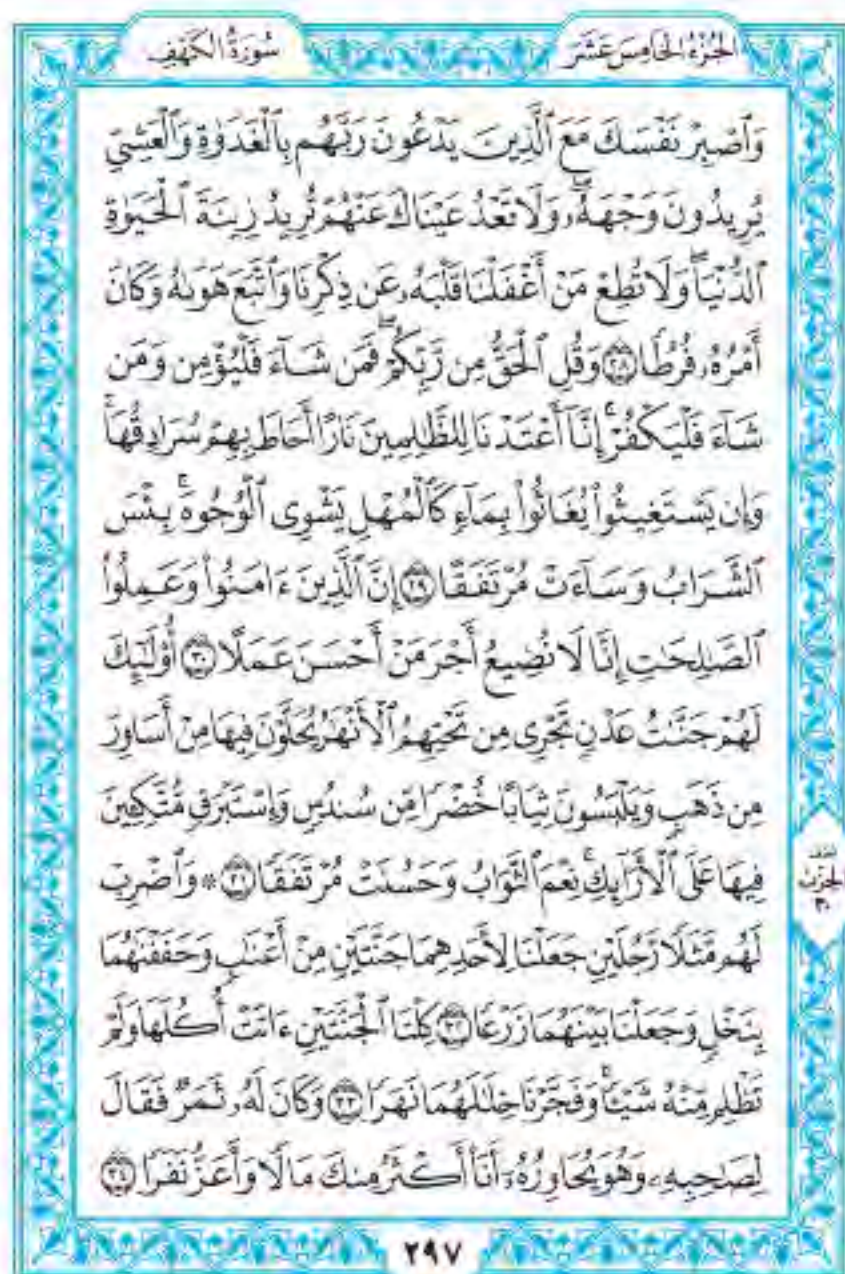 الجزء الخامس عشر
سورة الكهف
وَٱصْبِرْ نَفْسَكَ مَعَ ٱلَّذِينَ يَدْعُونَ رَبَّهُم بِٱلْغَدَوٰةِ وَٱلْعَشِىِّ
يُرِيدُونَ وَجْهَهُۥ ۖ وَلَا تَعْدُ عَيْنَاكَ عَنْهُمْ تُرِيدُ زِينَةَ ٱلْحَيَوٰةِ
ٱلدُّنْيَا ۖ وَلَا تُطِعْ مَنْ أَغْفَلْنَا قَلْبَهُۥ عَن ذِكْرِنَا وَٱتَّبَعَ هَوَىٰهُ وَكَانَ
أَمْرُهُۥ فُرُطًا ٢٨ وَقُلِ ٱلْحَقُّ مِن رَّبِّكُمْ ۖ فَمَن شَآءَ فَلْيُؤْمِن وَمَن
شَآءَ فَلْيَكْفُرْ ۚ إِنَّآ أَعْتَدْنَا لِلظَّٰلِمِينَ نَارًا أَحَاطَ بِهِمْ سُرَادِقُهَا ۚ
وَإِن يَسْتَغِيثُوا۟ يُغَاثُوا۟ بِمَآءٍ كَٱلْمُهْلِ يَشْوِى ٱلْوُجُوهَ ۚ بِئْسَ
ٱلشَّرَابُ وَسَآءَتْ مُرْتَفَقًا ٢٩ إِنَّ ٱلَّذِينَ ءَامَنُوا۟ وَعَمِلُوا۟
ٱلصَّٰلِحَٰتِ إِنَّا لَا نُضِيعُ أَجْرَ مَنْ أَحْسَنَ عَمَلًا ٣٠ أُو۟لَٰٓئِكَ
لَهُمْ جَنَّٰتُ عَدْنٍ تَجْرِى مِن تَحْتِهِمُ ٱلْأَنْهَٰرُ يُحَلَّوْنَ فِيهَا مِنْ أَسَاوِرَ
مِن ذَهَبٍ وَيَلْبَسُونَ ثِيَابًا خُضْرًا مِّن سُندُسٍ وَإِسْتَبْرَقٍ مُّتَّكِـِٔينَ
فِيهَا عَلَى ٱلْأَرَآئِكِ ۚ نِعْمَ ٱلثَّوَابُ وَحَسُنَتْ مُرْتَفَقًا ٣١ * وَٱضْرِبْ
لَهُم مَّثَلًا رَّجُلَيْنِ جَعَلْنَا لِأَحَدِهِمَا جَنَّتَيْنِ مِنْ أَعْنَٰبٍ وَحَفَفْنَٰهُمَا
بِنَخْلٍ وَجَعَلْنَا بَيْنَهُمَا زَرْعًا ٣٢ كِلْتَا ٱلْجَنَّتَيْنِ ءَاتَتْ أُكُلَهَا وَلَمْ
تَظْلِم مِّنْهُ شَيْـًٔا ۚ وَفَجَّرْنَا خِلَٰلَهُمَا نَهَرًا ٣٣ وَكَانَ لَهُۥ ثَمَرٌ فَقَالَ
لِصَٰحِبِهِۦ وَهُوَ يُحَاوِرُهُۥٓ أَنَا۠ أَكْثَرُ مِنكَ مَالًا وَأَعَزُّ نَفَرًا ٣٤
الحزب
٣٠
٢٩٧